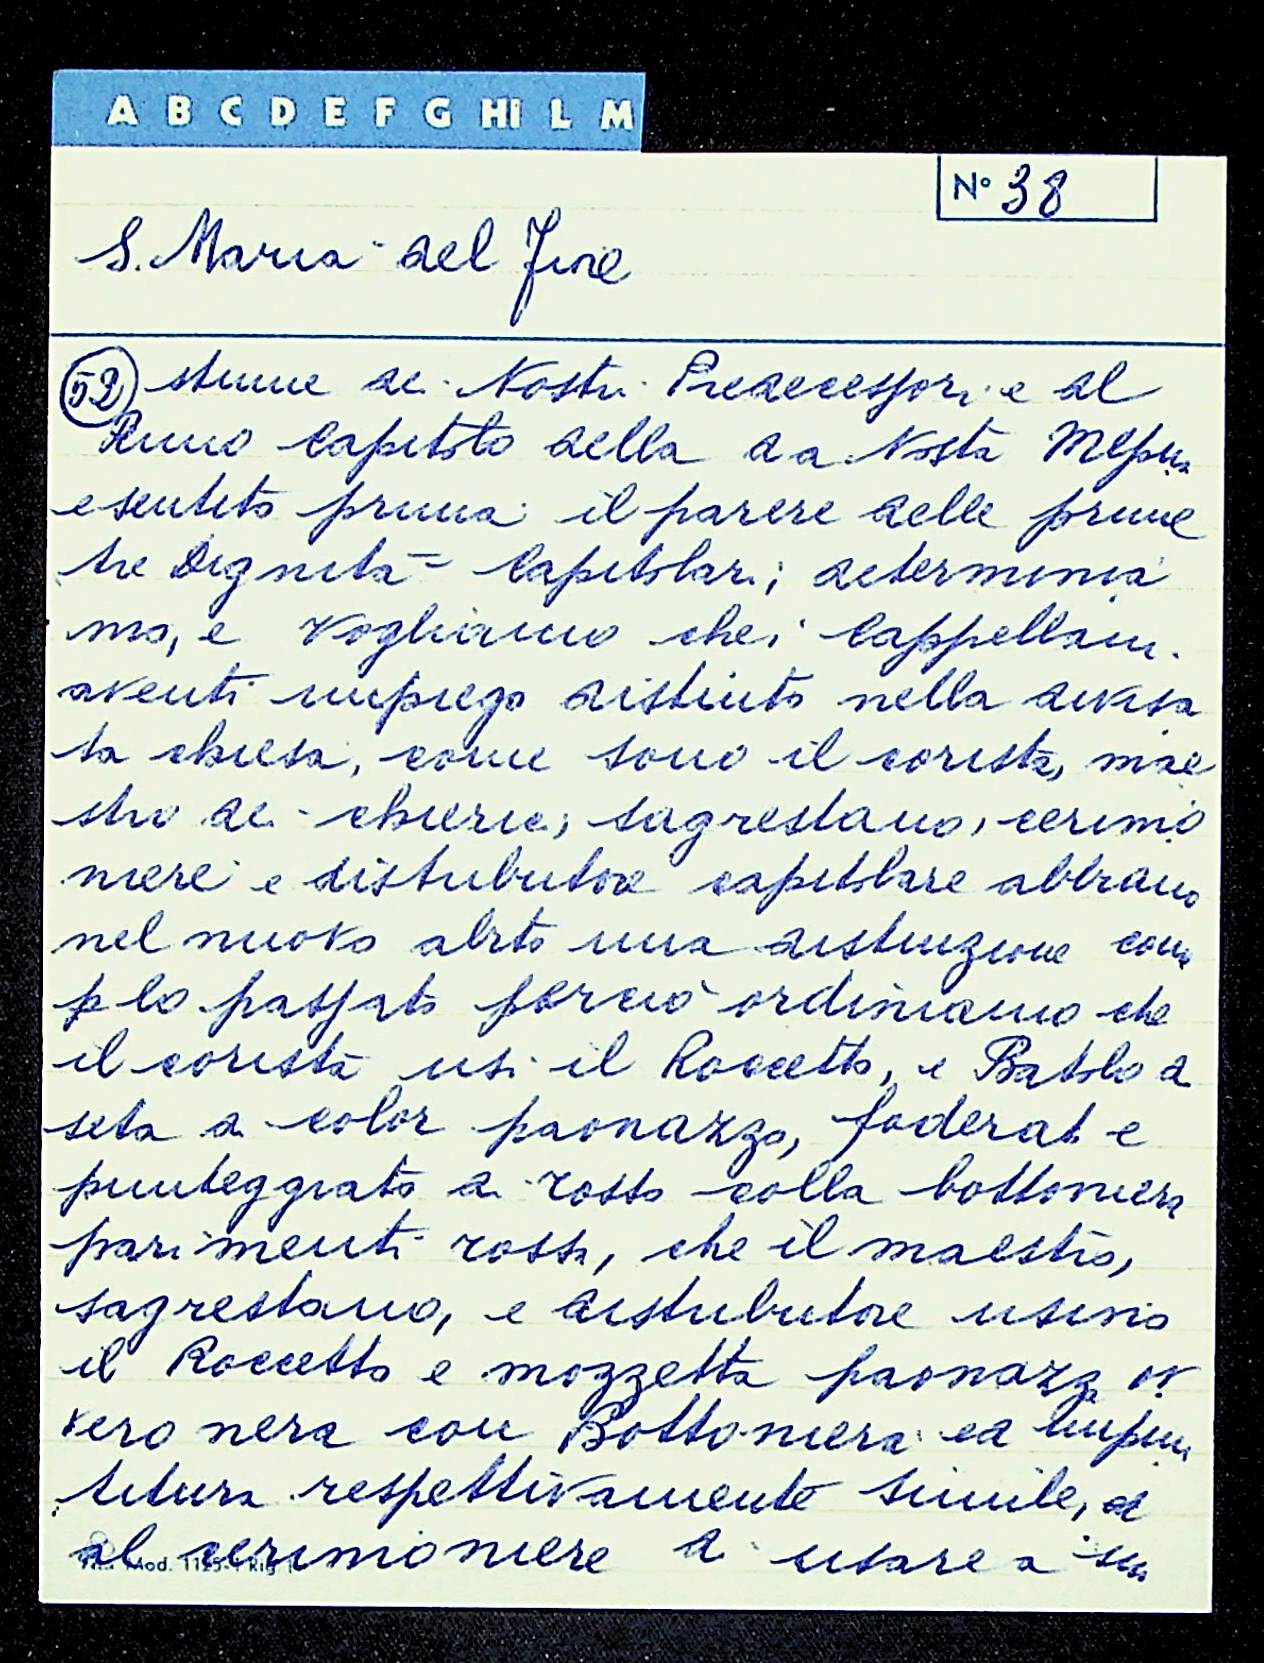 A B C D E F G HI L M
N° 38
S. Maria del Fiore
52 stume dei Nostri Predecessori e al
Rmmo Capitolo della da Nosta
e sentito prima il parere delle prime
tre Dignità Capitolari; determinia
mo, e vogliamo che i Cappellani
aventi impiego distinto nella divisa
ta chiesa, come sono il corista, mae
stro dei chierici, sagrestano, cerimo
niere e distributore capitolare abbiano
nel nuovo abito una distinzione come
p lo passato perciò ordiniamo che
il corista usi il Roccetto, e Batolo di
seta di color paonazzo, foderat e
punteggiato di rosso colla bottoniera
parimenti rossa, che il maestro,
sagrestano, e distributore usino
il Roccetto e mozzetta paonazza ov
vero nera con Bottoniera ed impun
titura respettivamente simile, ed
al cerimoniere di usare a sua
Mod. 1125-1 Rig